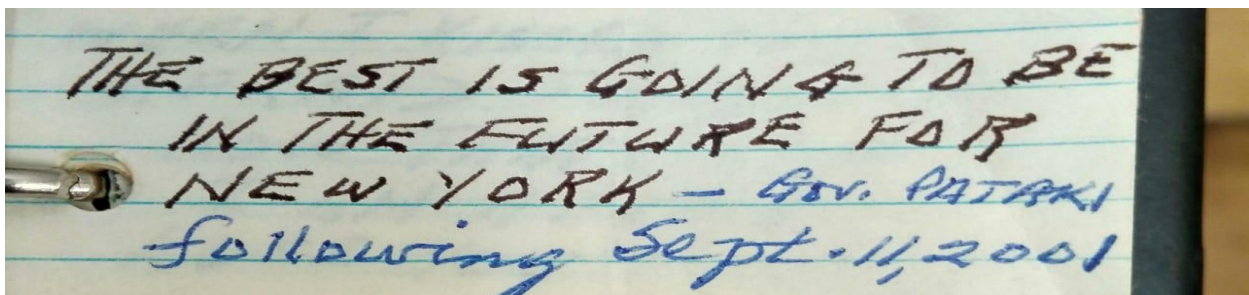 THE BEST IS GOING TO BE
IN THE FUTURE FOR
NEW YORK – GOV. PATAKI
following Sept. 11, 2001